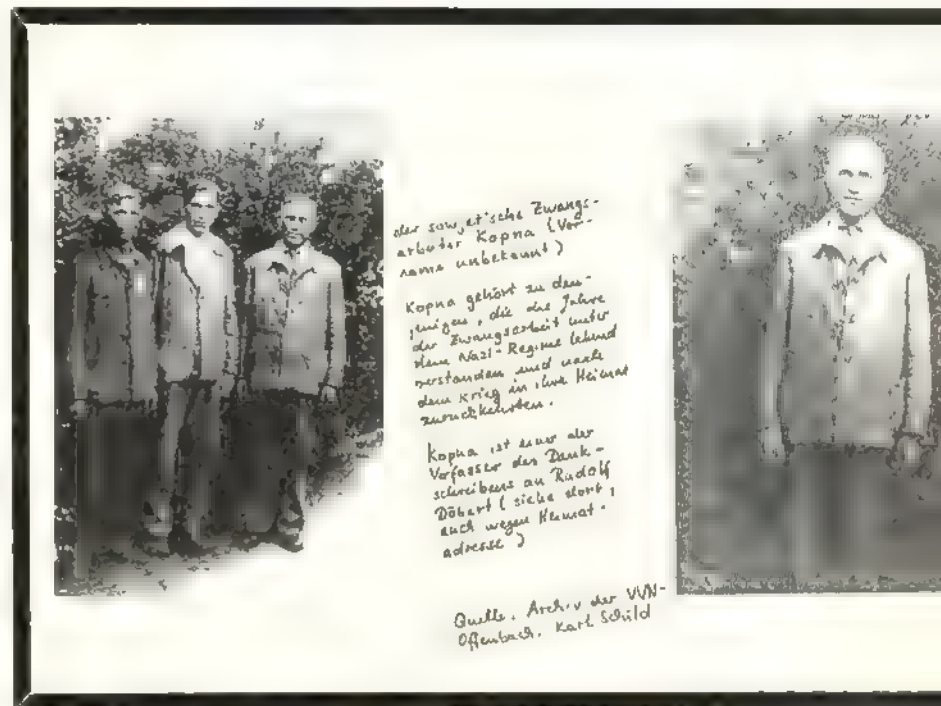 der sowjetische Zwangs-
arbeiter Kopna (Vor-
name unbekannt)
Kopna gehört zu den-
jenigen, die die Jahre
der Zwangsarbeit unter
dem Nazi-Regime lebend
überstanden und nach
dem Krieg in ihre Heimat
zurückkehrten.
Kopna ist einer der
Verfasser des Dank-
schreibens an Rudolf
Döbert (siehe dort,
auch wegen Heimat-
adresse)
Quelle: Archiv der VVN-
Offenbach, Karl Schild